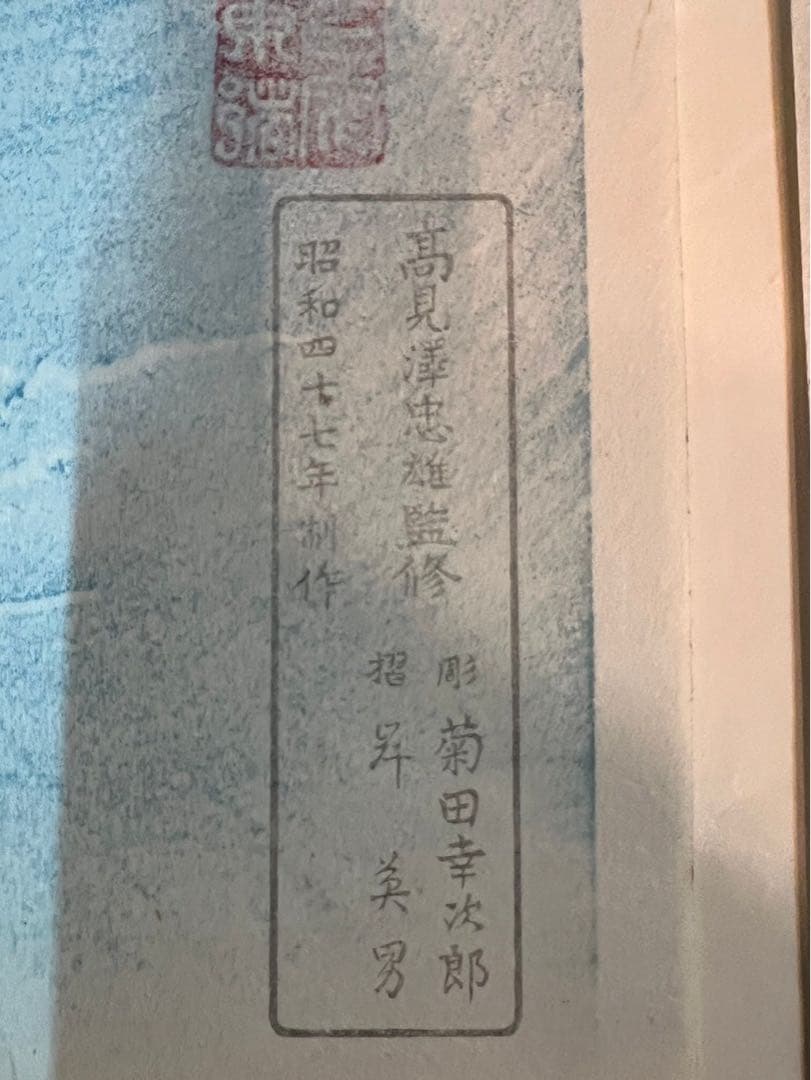 高見澤忠雄監修
彫 菊田幸次郎
摺 岸 英男
昭和四十七年制作